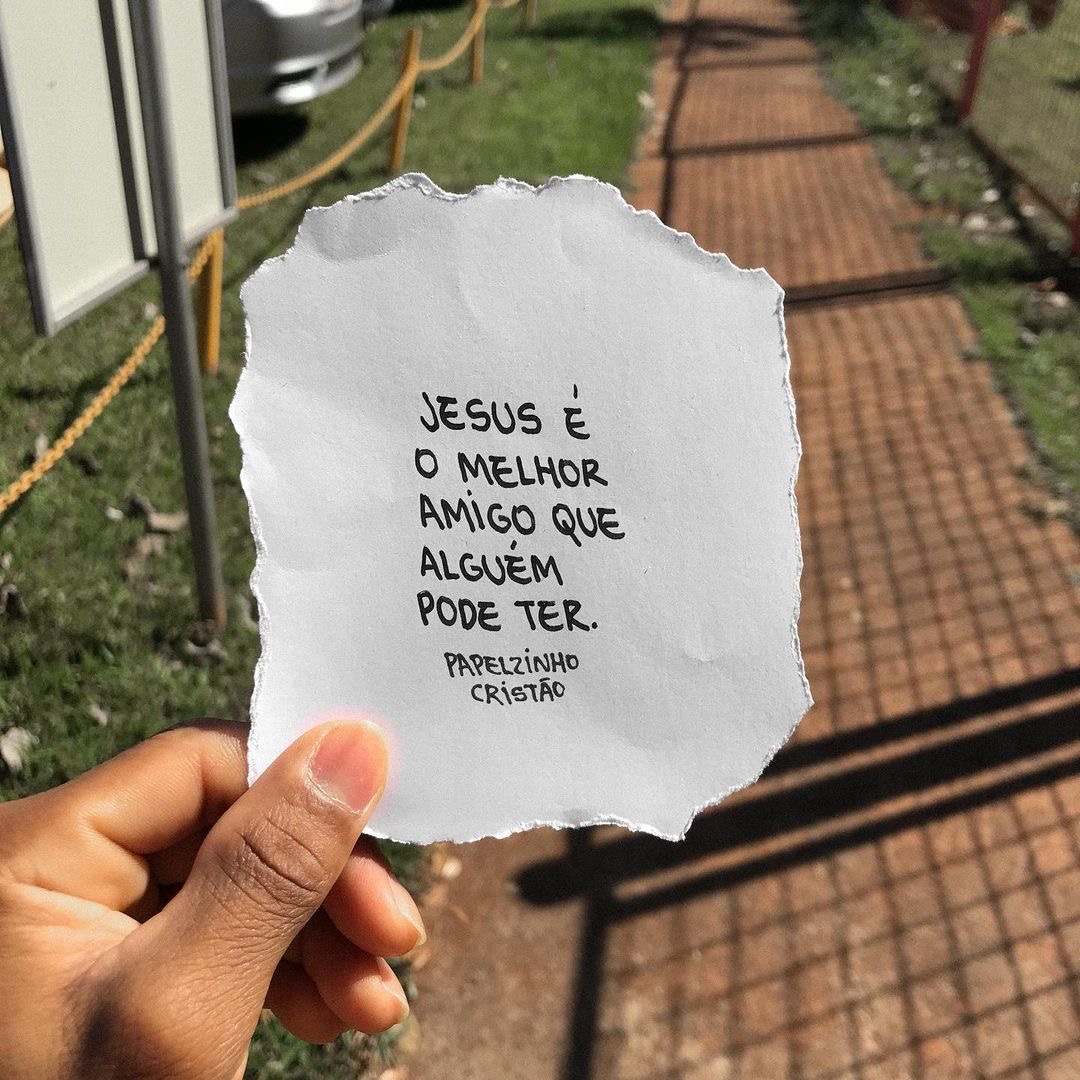 JESUS É
O MELHOR
AMIGO QUE
ALGUÉM
PODE TER.
PAPELZINHO
CRISTÃO